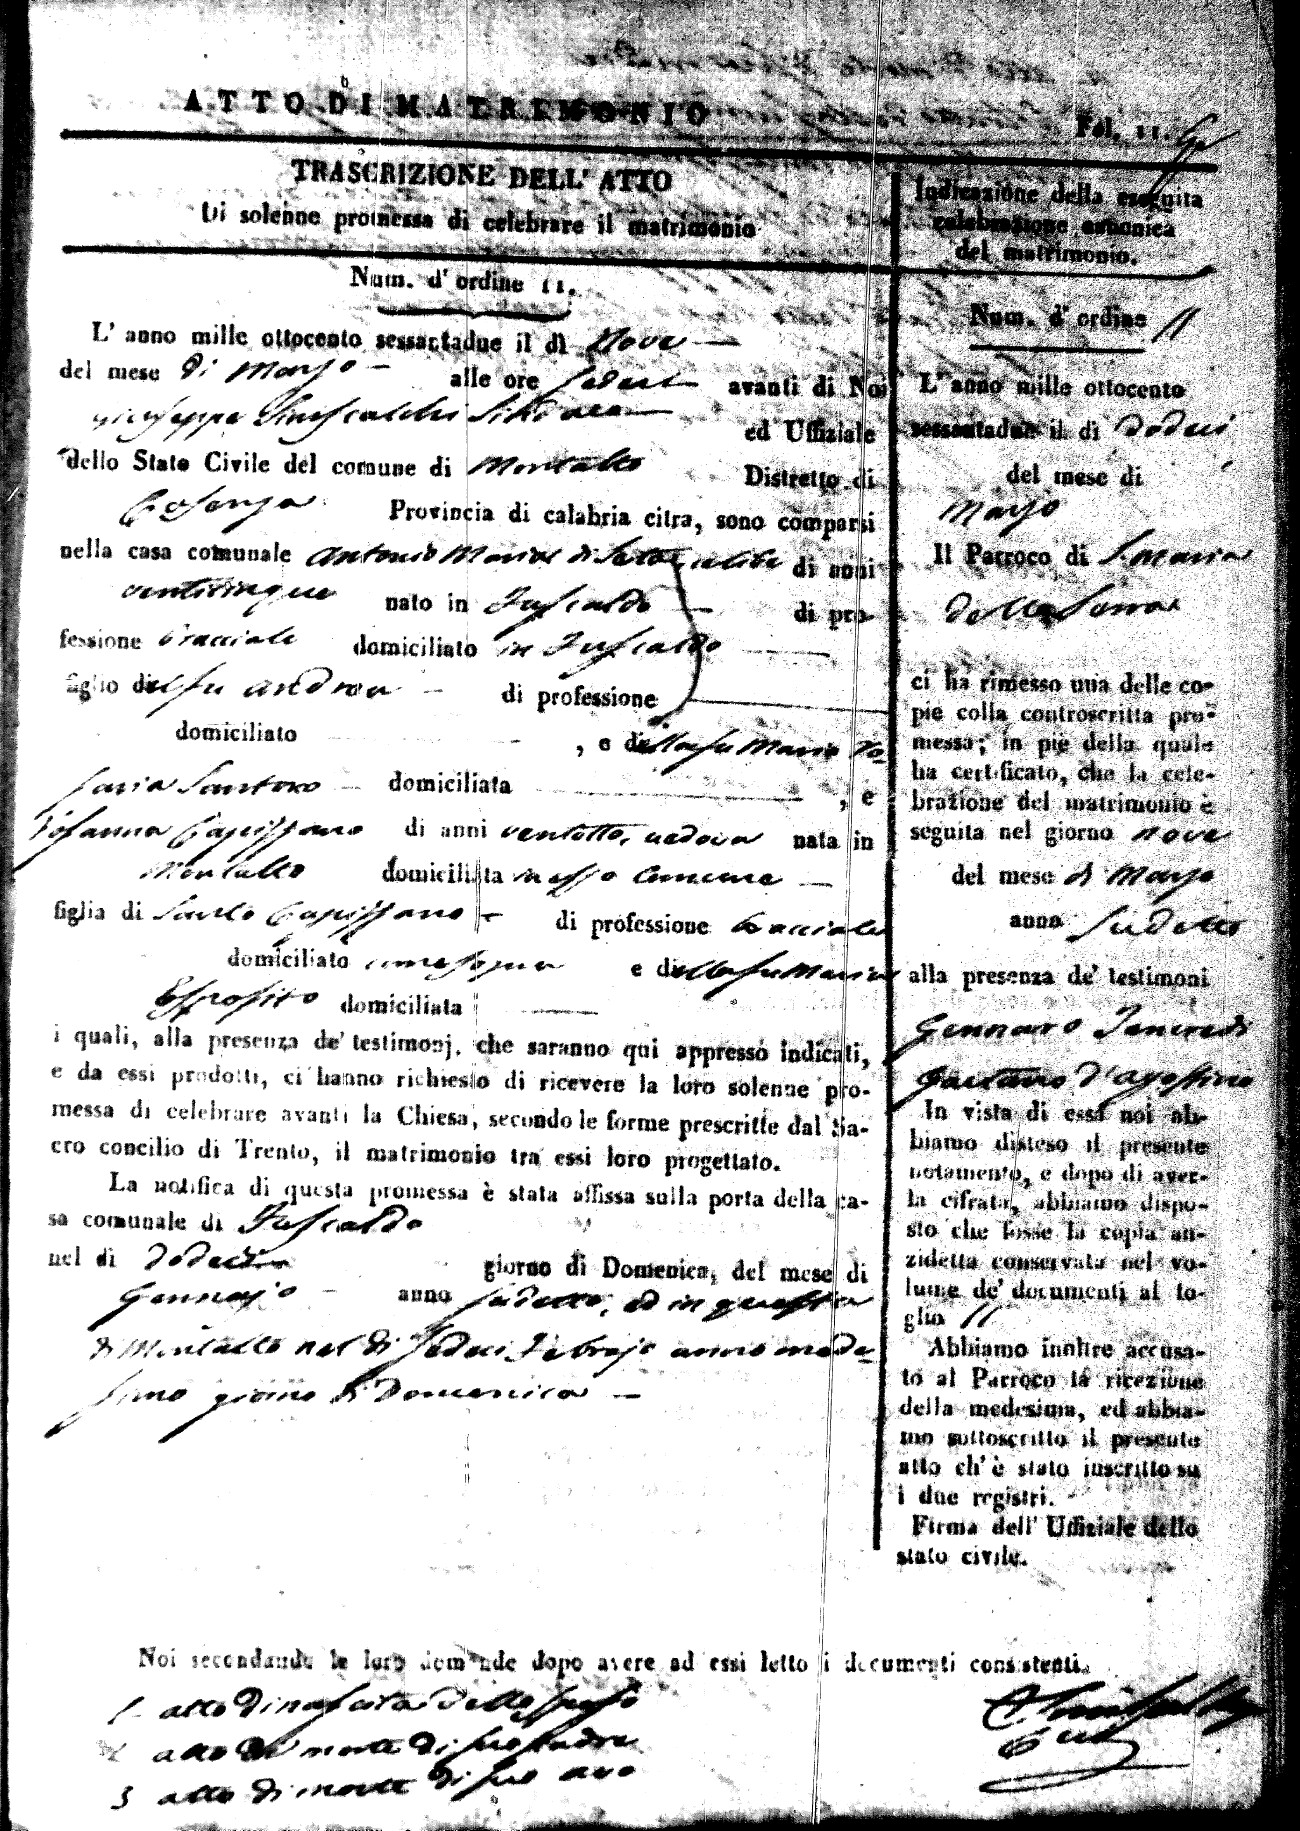 ATTO DI MATRIMONIO
Fol. 11.
TRASCRIZIONE DELL' ATTO
Di solenne promessa di celebrare il matrimonio
Num. d' ordine 11.
L' anno mille ottocento sessantadue il dì Nove
del mese di Marzo alle ore sedeci avanti di Noi
Giuseppe Sindaco ed Uffiziale
dello Stato Civile del comune di Montalto Distretto di
Cosenza Provincia di calabria citra, sono comparsi
nella casa comunale Antonio Maria di Seta celibe di anni
venticinque nato in Fuscaldo di pro-
fessione bracciale domiciliato in Fuscaldo
figlio del fu Andrea di professione
domiciliato , e della fu Maria Ro-
saria Santoro domiciliata , e
Rosanna Capizzano di anni ventotto, vedova nata in
Montalto domiciliata in esso Comune
figlia di Santo Capizzano di professione bracciale
domiciliato come sopra e della fu Maria
Esposito domiciliata
i quali, alla presenza de' testimonj, che saranno qui appresso indicati,
e da essi prodotti, ci hanno richiesto di ricevere la loro solenne pro-
messa di celebrare avanti la Chiesa, secondo le forme prescritte dal Sa-
cro concilio di Trento, il matrimonio tra essi loro progettato.
La notifica di questa promessa è stata affissa sulla porta della ca-
sa comunale di Fuscaldo
nel dì dodeci giorno di Domenica, del mese di
Gennajo anno sudetto, ed in questa
di Montalto nel dì sedeci Febrajo anno mede-
simo giorno di Domenica
Noi secondando le loro domande dopo avere ad essi letto i documenti consistenti
1 atto di nascita dello sposo
2 atto di morte di suo padre
3 atto di morte di suo avo
Indicazione della eseguita
celebrazione canonica
del matrimonio.
Num. d' ordine 11
L' anno mille ottocento
sessantadue il dì dodeci
del mese di
Marzo
Il Parroco di S. Maria
della Serra
ci ha rimesso una delle co-
pie colla controscritta pro-
messa; in piè della quale
ha certificato, che la cele-
brazione del matrimonio è
seguita nel giorno nove
del mese di Marzo
anno sudetto
alla presenza de' testimoni
Gennaro
Gaetano d'Agostino
In vista di essa noi ab-
biamo disteso il presente
notamento, e dopo di aver-
la cifrata, abbiamo dispo-
sto che fosse la copia an-
zidetta conservata nel vo-
lume de' documenti al fo-
glio 11
Abbiamo inoltre accusa-
to al Parroco la ricezione
della medesima, ed abbia-
mo sottoscritto il presente
atto ch' è stato inscritto su
i due registri.
Firma dell' Uffiziale dello
stato civile.